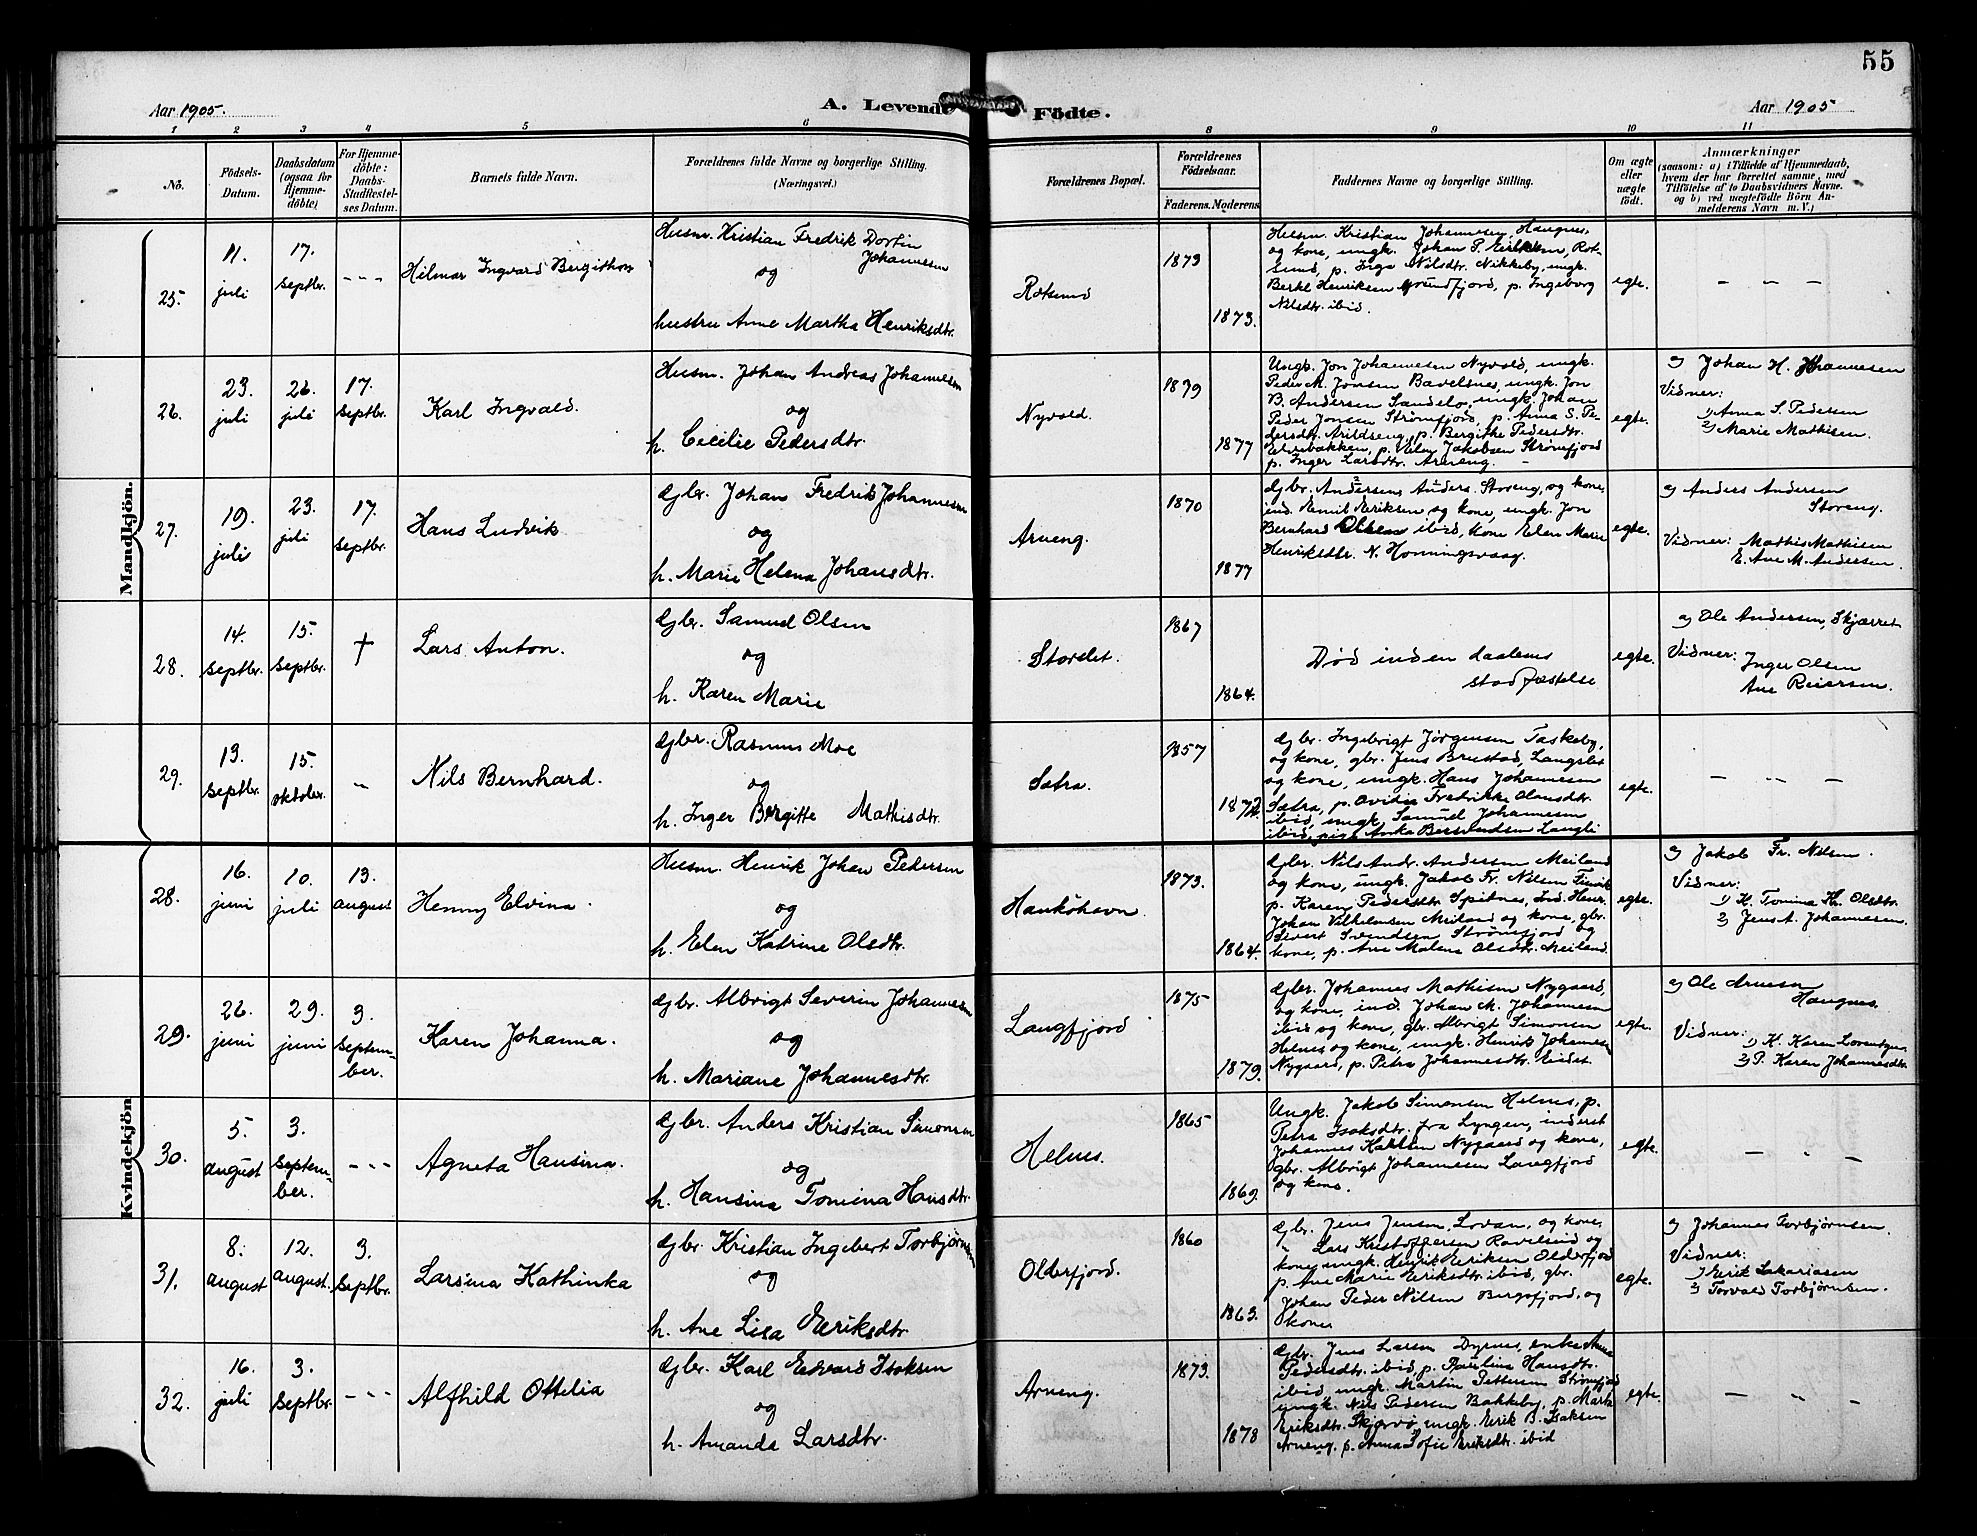 55
Aar 1905.
A. Levende Födte.
Aar 1905
1 2 3 4 5 6 8 9 10 11
No.
Födsels-Datum.
Daabsdatum (ogsaa for Hjemme-döbte)
For Hjemme-döbte: Daabs-Stadfæstel-ses Datum.
Barnets fulde Navn.
Forældrenes fulde Navne og borgerlige Stilling.
(Næringsvei.)
Forældrenes Bopæl.
Forældrenes Födselsaar.
Faderens. Moderens.
Faddernes Navne og borgerlige Stilling.
Om ægte eller uægte födt.
Anmærkninger
(saasom: a) i Tilfælde af Hjemmedaab,
hvem der har forrettet samme, med
Tilföielse af to Daabsvidners Navne.
og b) ved uægtefödte Börn An-
melderens Navn m. V.)
Mandkjön.
25.
11. juli
17. septbr.
- - -
Hilmar Ingvard Bergithon
Husm. Kristian Fredrik Dortin
Johannesen
og
hustru Anne Martha Henriksdtr.
Rotsund
1873
1873.
Husm. Kristian Johannesen, Haugnes,
og kone, ungk. Johan P. Eriksen, Rot-
sund, p. Inga Nilsdtr. Nikkeby, ungk.
Bertel Henriksen Grundfjord, p. Ingeborg
Nilsdtr. ibid.
egte.
- - -
26.
23. juli
26. juli
17. septbr.
Karl Ingvald.
Husm. Johan Andreas Johannesen
og
h. Cecilie Pedersdtr.
Nyvold.
1879
1877
Ungk. Jon Johannesen Nyvold, ungk.
Peder M. Jonsen Bavelsnes, ungk. Jon
B. Andersen Sandelo, ungk. Johan
Peder Jonsen Strømfjord, p. Anna S. Pe-
dersdtr. Arildseng, p. Bergithe Pedersdtr.
p. Inger Larsdtr. Arneng.
egte.
a) Johan H. Johannesen
Vidner:
1) Anna S. Pedersen
2) Marie Mathisen.
27.
19. juli
23. juli
17. septbr.
Hans Ludvik
Gbr. Johan Fredrik Johannesen
og
h. Marie Helena Johansdtr.
Arneng.
1870
1877
Gbr. Andersen Anders Storeng, og kone,
ind. Emil Eriksen og kone, ungk. Jon
Bernhard Olsen ibid, kone Elen Marie
Henriksdtr. N. Honningsvaag.
egte.
a) Anders Andersen
Storeng.
Vidner: Mathis Mathisen
E. Ane M. Andersen.
28.
14. septbr.
15. septbr.
†
Lars Anton.
Gbr. Samuel Olsen
og
h. Karen Marie
Storslet.
1867
1864.
Død inden daabens
stadfæstelse
egte.
a) Ole Andersen, Skjærret
Vidner: Inger Olsen
Ane Reiersen.
29.
13. septbr.
15. oktober.
-
Nils Bernhard.
Gbr. Rasmus Moe
og
h. Inger Bergitte Mathisdtr.
Sætra.
1857
1872
Gbr. Ingebrigt Jørgensen Taskeby,
og kone, gbr. Jens Brustad, Langslet
og kone, ungk. Hans Johannesen
Sætra, p. Ovidie Fredrikke Olausdtr.
ibid, ungk. Samuel Johannesen
ibid, pige Anka Berntsdsen Langli
egte.
- - -
Kvindekjön
28.
16. juni
10. juli
13. august
Henny Elvina.
Husm. Henrik Johan Pedersen
og
h. Elen Katrine Olsdtr.
Haukøhavn.
1873.
1864.
Gbr. Nils Andr. Andersen Meiland
og kone, ungk. Jakob Fr. Nilsen
p. Karen Pedersdtr. Spitnes, ind. Henr.
Johan Vilhelmsen Meiland og kone, gbr.
Sivert Svendsen Strømfjord og
kone, p. Ane Malene Olsdtr. Meiland.
egte.
a) Jakob Fr. Nilsen.
Vidner:
1) K. Tomina Kr. Olsdtr.
2) Jens A. Johannesen.
29.
26. juni
29. juni
3. septem-ber.
Karen Johanna.
Gbr. Albrigt Severin Johannesen
og
h. Mariane Johannesdtr.
Langfjord
1875
1879.
Gbr. Johannes Mathisen Nygaard,
og kone, ind. Johan M. Johannesen
ibid og kone, gbr. Albrigt Simonsen
Helnes og kone, ungk. Henrik Johannesen
Nygaard, p. Petra Johannesdtr. Eidet.
egte.
a) Ole Arnesen
Haugnes.
Vidner: 1) K. Karen Lorentzen
2) P. Karen Johannesdtr.
30.
5. august
3. septem-ber.
- - -
Agneta Hansina.
Gbr. Anders Kristian Simonsen
og
h. Hansina Tomina Hansdtr.
Helnes.
1865
1869.
Ungk. Jakob Simonsen Helnes, p.
Petra Isaksdtr. fra Lyngen, inderst
Johannes Karlsen Nygaard og kone,
gbr. Albrigt Johannesen Langfjord
og kone.
egte.
- - -
31.
8. august
12. august.
3. septbr.
Larsina Kathinka
Gbr. Kristian Ingebert Torbjørnsen
og
h. Ane Lisa Eriksdtr.
Olderfjord.
1860
1863.
Gbr. Jens Jensen, Lovan, og kone,
" Lars Kristoffersen Ravelseid og
kone, ungk. Henrik Eriksen Olderfjord
p. Ane Marie Eriksdtr. ibid, gbr.
Johan Peder Nilsen Bergsfjord, og
kone
egte.
a) Johannes Torbjørnsen.
Vidner:
1) Erik Sakariasen
2) Torvald Torbjørnsen.
32.
16. juli
3. septbr.
- - -
Alfhild Ottelia
Gbr. Karl Edvard Isaksen
og
h. Amanda Larsdtr.
Arneng.
1873.
1878
Gbr. Jens Larsen Dyrnes, enke Anne
Pedersdtr. ibid, p. Paulina Hansdtr.
ibid, ungk. Martin Pettersen Strømfjord
ungk. Nils Pedersen Bakkeby, p. Marta
Eriksdtr. Skjervø, ungk. Erik B. Isaksen
Arneng, p. Anna Sofie Eriksdtr. ibid
egte.
- - -